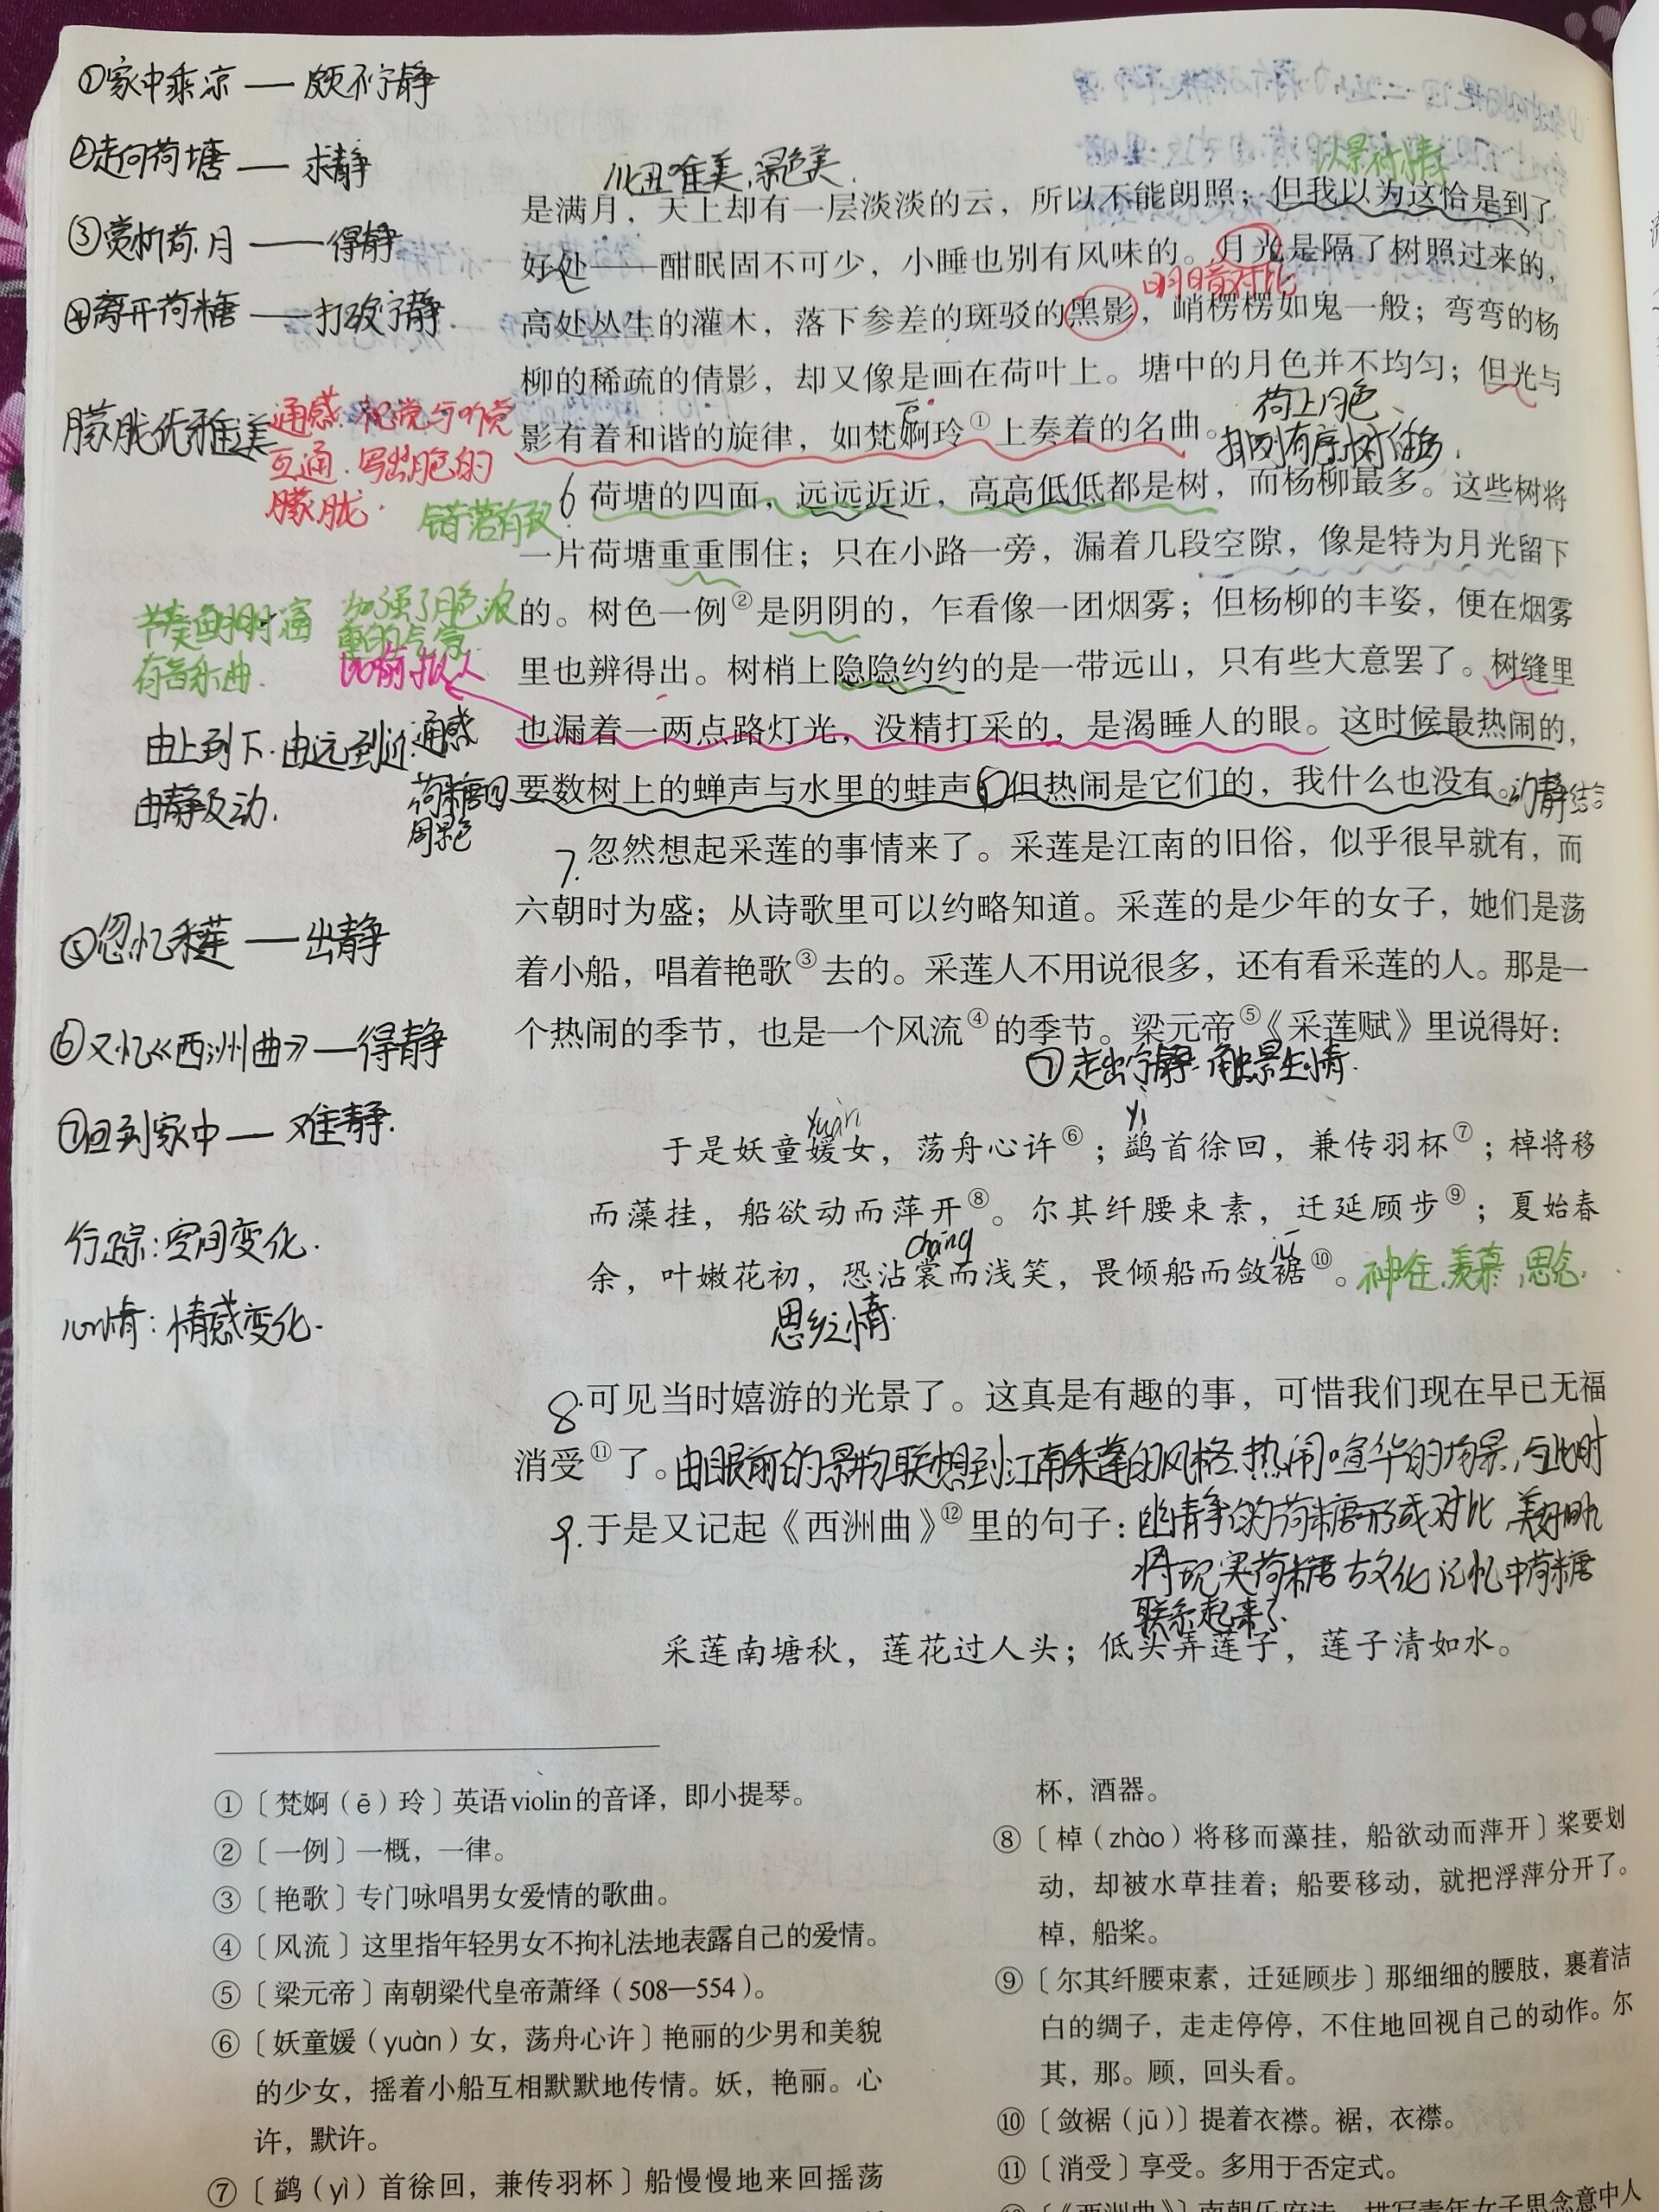 ①家中乘凉——颇不宁静
②走向荷塘——求静
③赏析荷.月——得静
④离开荷糖——打破宁静.
朦胧优雅美
通感.视觉与听觉
互通.写出月色的
朦胧.
错落有致
节奏鲜明.富
有音乐曲.
加强了月色浓
重的气氛.
比喻拟人
由上到下.由远到近.通感
由静及动.
荷糖四
周景色
⑤忽忆采莲——出静
⑥又忆《西洲曲》—得静
⑦回到家中—难静.
行踪:空间变化.
心情:情感变化.
以景衬情
是满月，天上却有一层淡淡的云，所以不能朗照；但我以为这恰是到了
好处——酣眠固不可少，小睡也别有风味的。月光是隔了树照过来的，
明暗对比
高处丛生的灌木，落下参差的斑驳的黑影，峭楞楞如鬼一般；弯弯的杨
柳的稀疏的倩影，却又像是画在荷叶上。塘中的月色并不均匀；但光与
荷上月色
影有着和谐的旋律，如梵婀玲①上奏着的名曲。
6荷塘的四面，远远近近，高高低低都是树，而杨柳最多。这些树将
一片荷塘重重围住；只在小路一旁，漏着几段空隙，像是特为月光留下
的。树色一例②是阴阴的，乍看像一团烟雾；但杨柳的丰姿，便在烟雾
里也辨得出。树梢上隐隐约约的是一带远山，只有些大意罢了。树缝里
也漏着一两点路灯光，没精打采的，是渴睡人的眼。这时候最热闹的，
要数树上的蝉声与水里的蛙声；但热闹是它们的，我什么也没有。动静结合
7.忽然想起采莲的事情来了。采莲是江南的旧俗，似乎很早就有，而
六朝时为盛；从诗歌里可以约略知道。采莲的是少年的女子，她们是荡
着小船，唱着艳歌③去的。采莲人不用说很多，还有看采莲的人。那是一
个热闹的季节，也是一个风流④的季节。梁元帝⑤《采莲赋》里说得好：
⑦走出宁静.触景生情.
yuàn yì
于是妖童媛女，荡舟心许⑥；鹢首徐回，兼传羽杯⑦；棹将移
而藻挂，船欲动而萍开⑧。尔其纤腰束素，迁延顾步⑨；夏始春
cháng jū
余，叶嫩花初，恐沾裳而浅笑，畏倾船而敛裾⑩。神往.羡慕.思念.
思乡之情.
8.可见当时嬉游的光景了。这真是有趣的事，可惜我们现在早已无福
消受⑪了。由眼前的景物联想到江南采莲的风格.热闹喧华的场景,与此时
9.于是又记起《西洲曲》⑫里的句子：幽静的荷糖形成对比
将现实荷糖古文化记忆中荷糖
联系起来了.
采莲南塘秋，莲花过人头；低头弄莲子，莲子清如水。
①〔梵婀（ē）玲〕英语violin的音译，即小提琴。
②〔一例〕一概，一律。
③〔艳歌〕专门咏唱男女爱情的歌曲。
④〔风流〕这里指年轻男女不拘礼法地表露自己的爱情。
⑤〔梁元帝〕南朝梁代皇帝萧绎（508—554）。
⑥〔妖童媛（yuàn）女，荡舟心许〕艳丽的少男和美貌
的少女，摇着小船互相默默地传情。妖，艳丽。心
许，默许。
⑦〔鹢（yì）首徐回，兼传羽杯〕船慢慢地来回摇荡
杯，酒器。
⑧〔棹（zhào）将移而藻挂，船欲动而萍开〕桨要划
动，却被水草挂着；船要移动，就把浮萍分开了。
棹，船桨。
⑨〔尔其纤腰束素，迁延顾步〕那细细的腰肢，裹着洁
白的绸子，走走停停，不住地回视自己的动作。尔
其，那。顾，回头看。
⑩〔敛裾（jū）〕提着衣襟。裾，衣襟。
⑪〔消受〕享受。多用于否定式。
⑫〔《西洲曲》〕南朝乐府诗，描写青年女子思念意中人